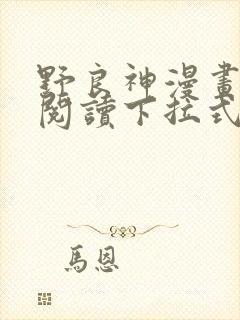 野良神漫畫
閱讀下拉式
馬恩